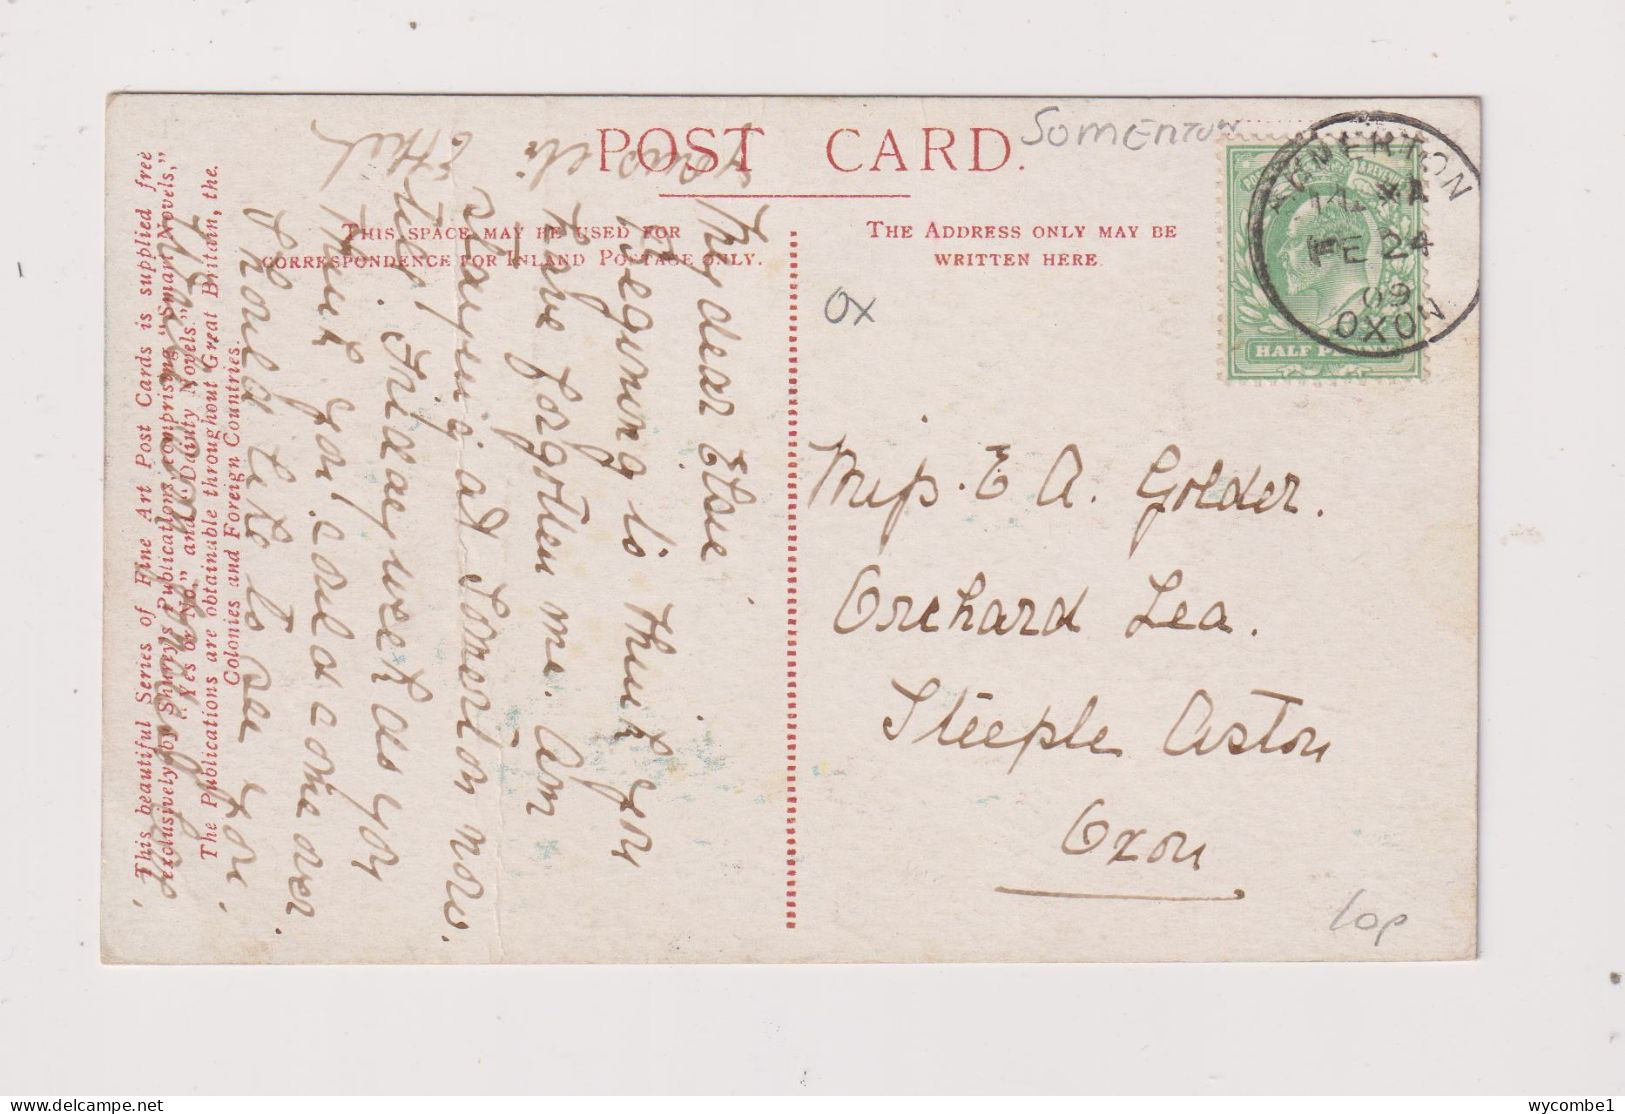 POST CARD.
SOMERTON
THIS SPACE MAY BE USED FOR
CORRESPONDENCE FOR INLAND POSTAGE ONLY.
THE ADDRESS ONLY MAY BE
WRITTEN HERE
OX
SOMERTON
FE 24
09
OXON
HALF PENNY
Miss. E A. Golder.
Orchard Lea.
Steeple Aston
Oxon
10p
My dear Elsie
Begining to think you
have forgotten me. Am
staying at Somerton now
till Friday week do you
think you could come over
should like to see you.
Yours etc
Ethel
This beautiful Series of Fine Art Post Cards is supplied free
exclusively by Shurey's Publications, comprising "Smart Novels,"
"Yes or No," and "Dainty Novels."
The Publications are obtainable throughout Great Britain, the
Colonies and Foreign Countries.
wycombe1